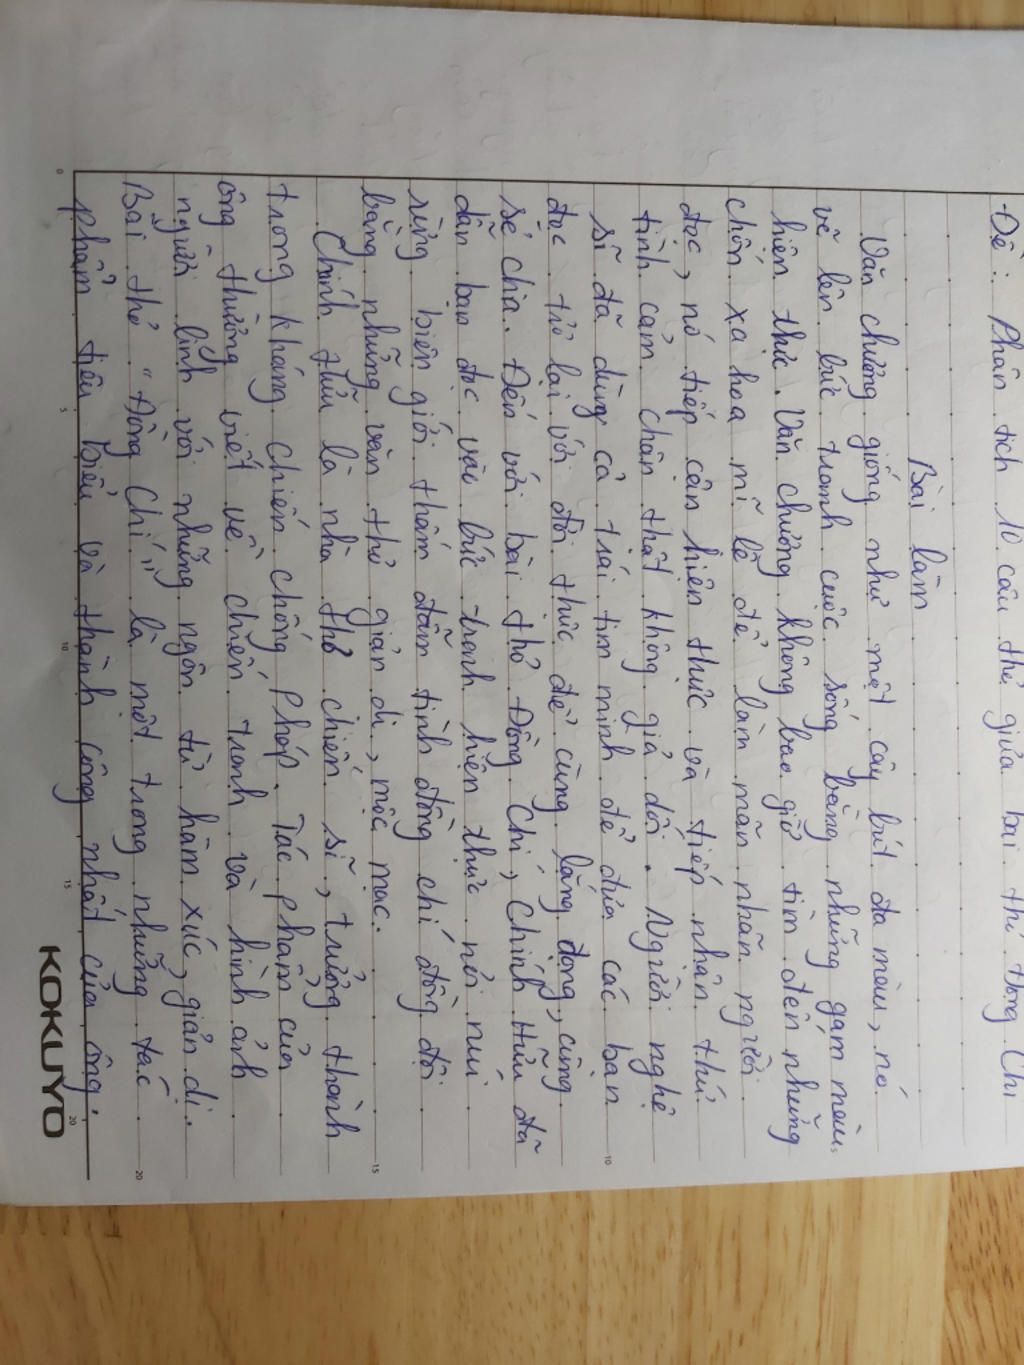 Đề: Phân tích 10 câu thơ giữa bài thơ Đồng Chí
Bài làm
Văn chương giống như một cây bút đa màu, nó
vẽ lên bức tranh cuộc sống bằng những gam màu
hiện thực. Văn chương không bao giờ tìm đến những
chốn xa hoa mĩ lệ để làm mãn nhãn người
đọc, nó tiếp cận hiện thực và tiếp nhận thứ
tình cảm chân thật không giả dối. Người nghệ
sĩ đã dùng cả trái tim mình để đưa các bạn
đọc trở lại với đời thực để cùng lắng đọng, cùng
sẻ chia. Đến với bài thơ Đồng Chí, Chính Hữu đã
dẫn bạn đọc vào bức tranh hiện thực nơi núi
rừng biên giới thấm đẫm tình đồng chí đồng đội
bằng những vần thơ giản dị, mộc mạc.
Chính Hữu là nhà thơ chiến sĩ, trưởng thành
trong kháng chiến chống Pháp. Tác phẩm của
ông thường viết về chiến tranh và hình ảnh
người lính với những ngôn từ hàm xúc, giản dị.
Bài thơ "Đồng Chí" là một trong những tác
phẩm tiêu biểu và thành công nhất của ông.
0
5
10
15
20
10
15
20
KOKUYO